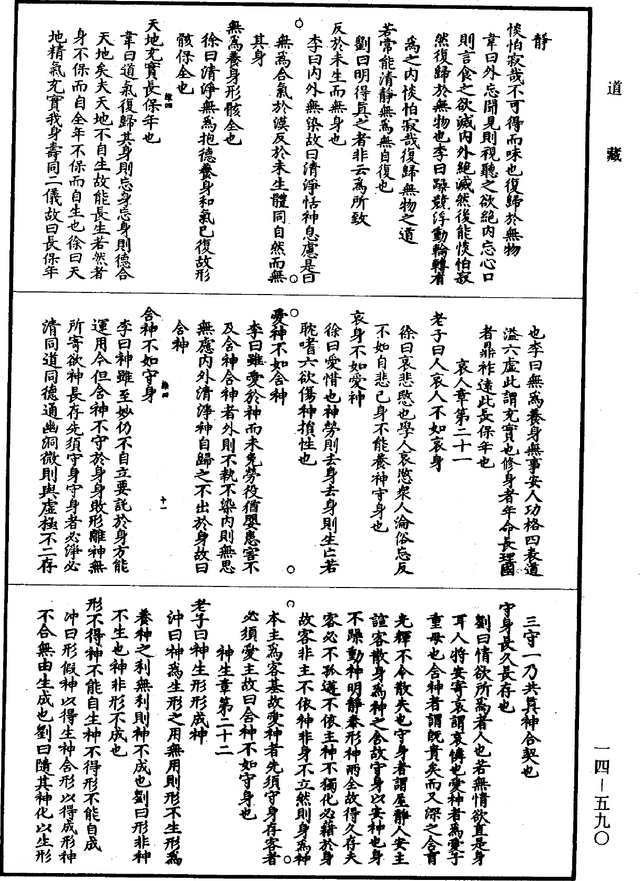 道藏
靜
惔怕寂哉不可得而味也復歸於無物
韋曰外忘聞見則視聽之欲絕內忘心口
則言食之欲滅內外絕滅然後能惔怕寂
然復歸於無物也李曰躁競浮動輪轉有
為之內惔怕寂哉復歸無物之道
若常能清靜無為無自復也
劉曰明得真之者非云為所致
反於未生而無身也
李曰內外無染故曰清淨恬神息慮是曰
無為合氣於漠反於未生體同自然而無
其身
無為養身形骸全也
徐曰清淨無為抱德養身和氣已復故形
骸保全也
天地充實長保年也
韋曰道氣復歸其身則忘身忘身則德合
天地矣夫天地不自生故能長生若然者
身不保而自全年不保而自生也徐曰天
地精氣充實我身壽同二儀故曰長保年
也李曰無為養身無事安人功格四表道
溢六虛此謂充實也修身者年命長理國
者鼎祚遠此長保年也
哀人章第二十一
老子曰人哀人不如哀身
徐曰哀悲愍也學人哀愍衆人淪俗忘反
不如自悲己身不能養神守身也
哀身不如愛神
徐曰愛惜也神勞則去身去身則生亡若
耽嗜六欲傷神損性也
愛神不如含神
李曰雖愛於神而未免勞役猶嬰患害不
及含神含神者外則不執不染內則無思
無慮內外清淨神自歸之不出於身故曰
含神
含神不如守身
十一
李曰神雖至妙仍不自立要託於身方能
運用今但含神不守於身身敗形離神無
所寄欲神長存先須守身守身者必淨必
清同道同德通幽洞微則與虛極不二存
三守一乃共真神合契也
守身長久長存也
劉曰情欲所為者人也若無情欲直是身
耳人將安寄哀謂哀憐也愛神者為愛子
重母也含神者謂既貴矣而又深之含育
光輝不令散失也守身者謂屋靜人安主
諠客散身為神之舍故守身以安神也身
不躁動神明靜養形神兩全故得久存夫
客必不孤遊不依主神不獨化必藉於身
故客非主不依神非身不立然則身為神
本主為客基故愛神者先須守身存客者
必須愛主故曰含神不如守身也
神生章第二十二
老子曰神生形形成神
沖曰神為生形之用無用則形不生形為
養神之利無利則神不成也劉曰形非神
不生也神非形不成也
形不得神不能自生神不得形不能自成
沖曰形假神以得生神合形以得成形神
不合無由生成也劉曰隨其神化以生形
一四—五九〇